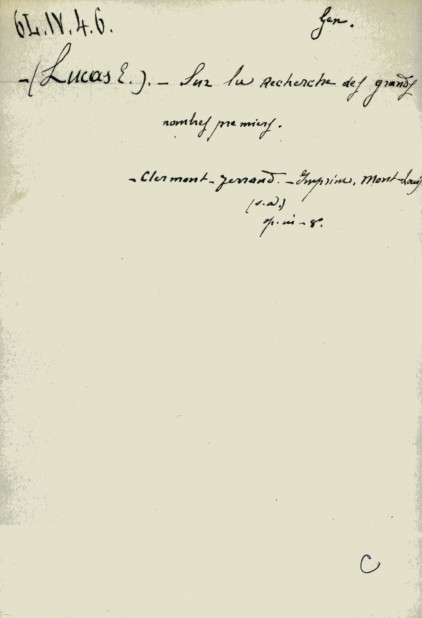 6L.IV.4.6.
Gen.
-(Lucas E.). - Sur la Recherche des grands
nombres premiers.
- Clermont-Ferrand. - Imprim. Mont-Louis
(s.d.)
op. in-8.
C